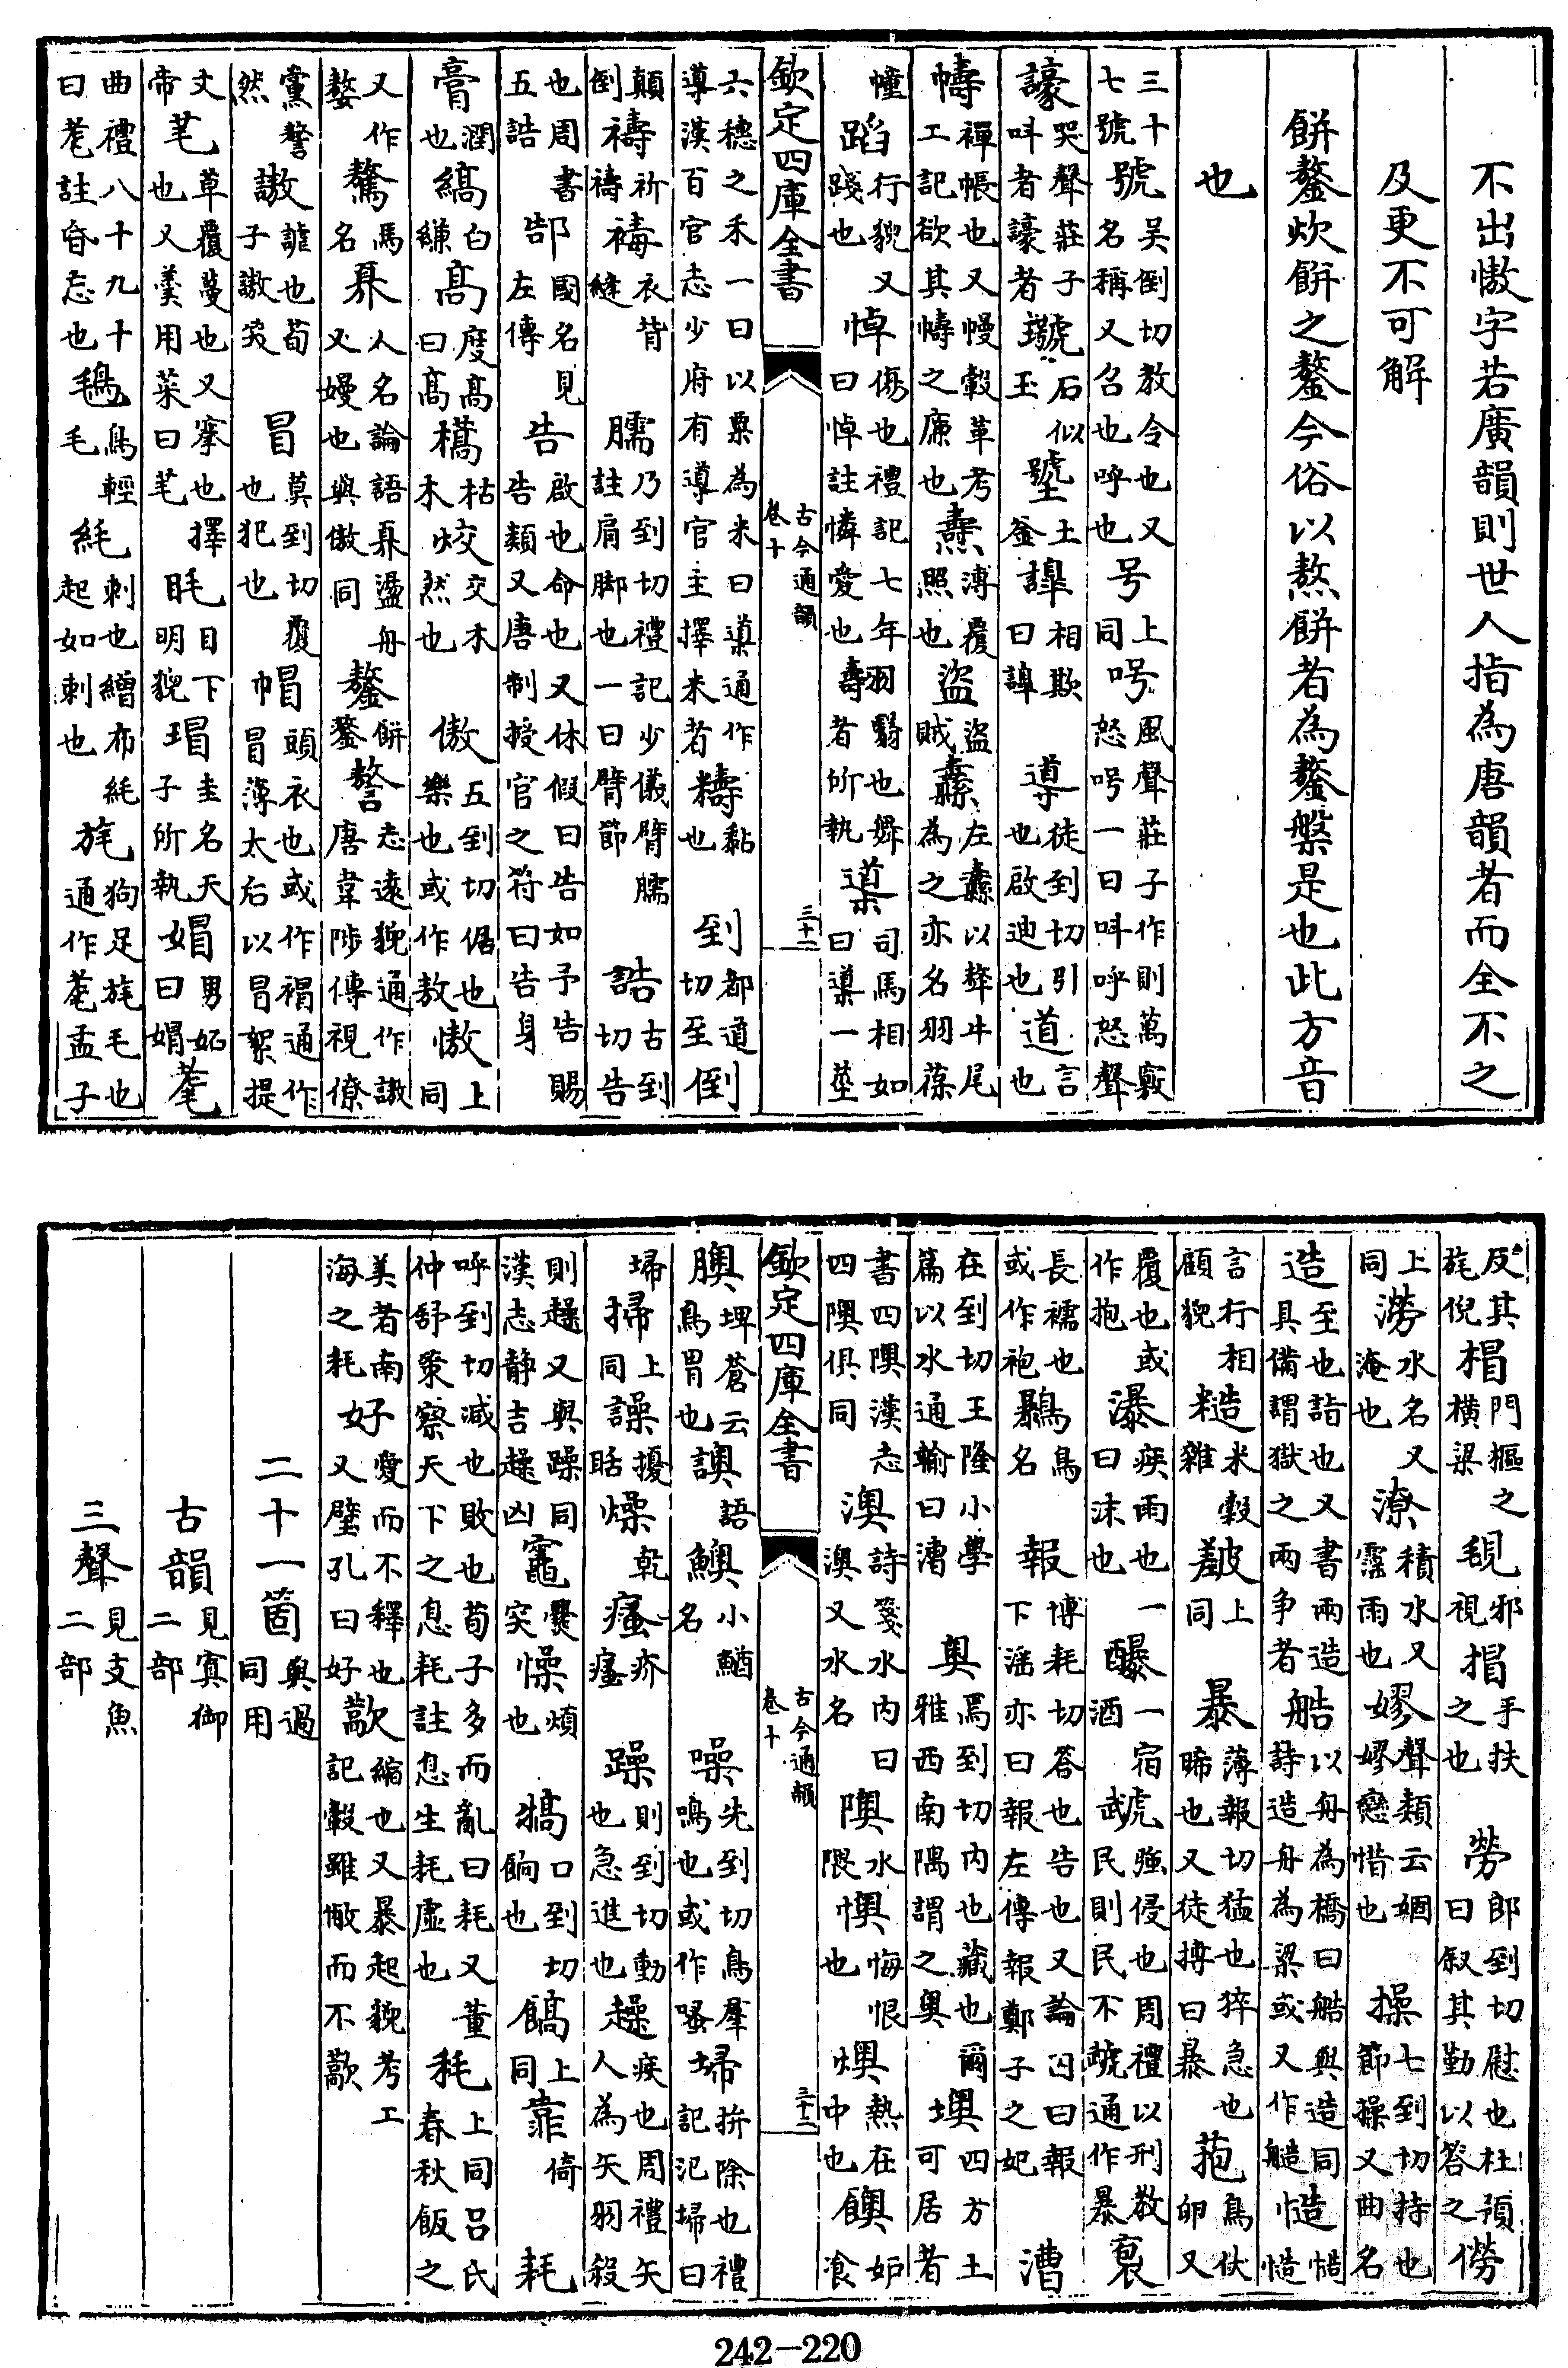 不出慠字若廣韻則世人指為唐韻者而全不之
及更不可解
餅鏊炊餅之鏊今俗以熬餅者為鏊槃是也此方音
也
三十七號號吳倒切教令也又名稱又召也呼也号上同呺風聲莊子作則萬竅怒呺一曰叫呼怒聲
譹哭聲莊子叫者譹者石似玉土釜相欺曰導徒到切引也啟迪也道言也
幬襌帳也又幔轂革考工記欲其幬之廉也燾溥覆照也盜盜賊纛左纛以犛牛尾為之亦名羽葆
幢蹈行貌又踐也悼傷也禮記七年曰悼註憐愛也翿翳也舞者所執䆃司馬相如曰䆃一莖
欽定四庫全書 古今通韻卷十 三十一
六穗之禾一曰以粟為米曰䆃通作導漢百官志少府有導官主擇米者黏也到都道切至倒
顛倒禱祈禱衣背縫臑乃到切禮記少儀臂臑註肩脚也一曰臂節誥古到切告
也周書五誥郜國名見左傳告啟也命也又休假曰告如予告賜告類又唐制授官之符曰告身
膏潤也縞白縑高度高曰高槁枯木烄交木然也傲五到切倨也樂也或作敖慠上同
又作嫯驁馬名奡人名論語奡盪舟又嫚也與傲同鏊餅鏊謷志遠貌通作謸唐韋陟傳視僚
黨謷然謸謔也荀子謸笑冒莫到切覆也犯也帽頭衣也或作褐通作冒薄太后以冒絮提
文帝芼草覆蔓也又搴也擇也又羹用菜曰芼眊目下明貌瑁圭名天子所執媢男妬曰媢耄
曲禮八十九十曰耄註昏忘也鳥輕毛刺也繒布起如刺也旄狗足旄毛也通作耄孟子
反其旄倪楣門樞之橫梁覒邪視手扶之也勞郎到切慰也杜預曰叙其勤以答之僗
上同澇水名又淹也潦積水又霪雨也嫪聲類云婟嫪戀惜也操七到切持也節操又曲名
造至也詣也又書兩造具備謂獄之兩爭者艁以舟為橋曰艁與造同詩造舟為梁或又作艁慥慥慥
言行相顧貌糙米穀雜上同暴薄報切猛也猝急也晞也又徒搏曰暴菢鳥伏卵又
覆也或作抱瀑疾雨也一曰沫也一宿酒虣強侵也周禮以刑教虣民則民不虣通作暴裒
長襦也或作袍鳥名報博耗切答也告也又論囚曰報下淫亦曰報左傳報鄭子之妃漕
在到切王隆小學篇以水通輸曰漕奧烏到切內也藏也爾雅西南隅謂之奧墺四方土可居者
書四隩漢志四隩俱同澳詩箋水內曰澳又水名隩水隈懊悔恨也燠熱在中也饇妒食
欽定四庫全書 古今通韻卷十 三十二
腴埤蒼云鳥胃也語小鰌名噪先到切鳥羣鳴也或作喿埽拚除也禮記氾埽曰
埽掃上同譟擾聒燥乾瘙疥躁則到切動也急進也趮疾也周禮矢人為矢羽殺
則趮又與躁同漢志靜吉趮凶竈爨突懆煩也犒口到切餉也上同靠倚耗
呼到切減也敗也荀子多而亂曰耗又董仲舒策察天下之息耗註息生耗虛也秏上同呂氏春秋飯之
美者南海之秏好愛而不釋也又璧孔曰好歊縮也又暴起貌考工記轂雖敝而不歊
二十一箇與過同用
古韻見寘御二部
三聲見支魚二部
242-220